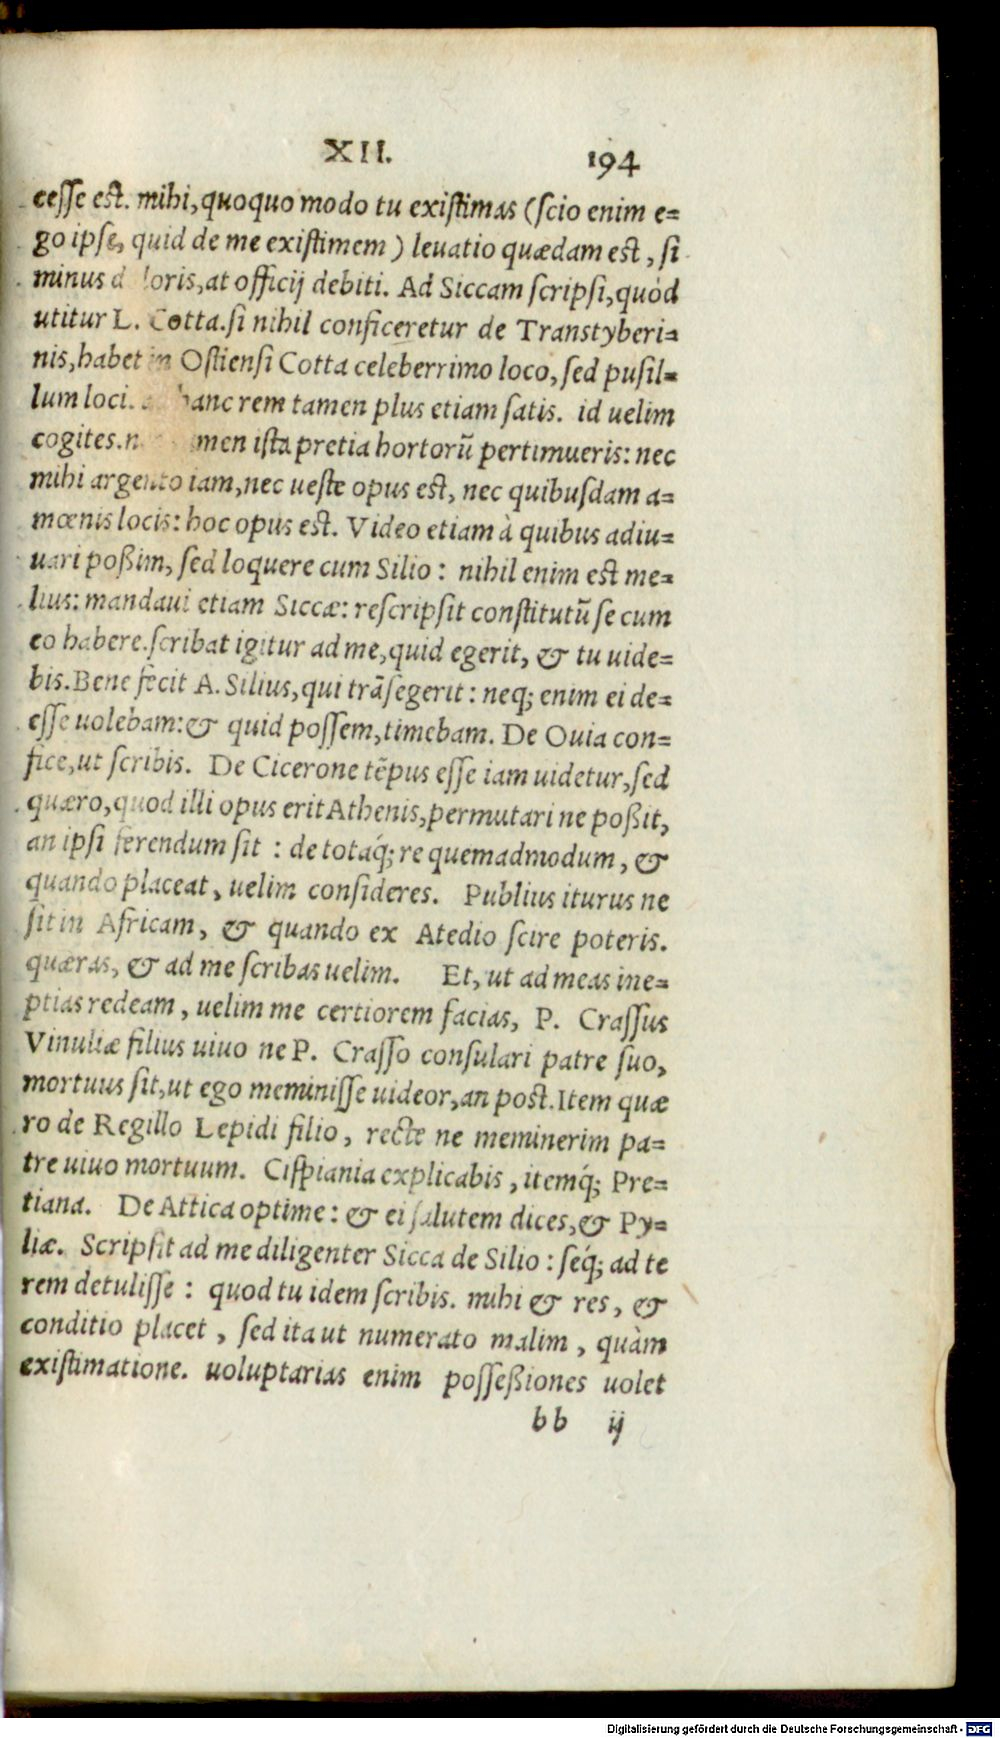 XII. 194
cesse est. mihi, quoquo modo tu existimas (scio enim e=
go ipse, quid de me existimem) levatio quædam est, si
minus loris, at officij debiti. Ad Siccam scripsi, quòd
utitur L. Cotta. si nihil conficeretur de Transtyberi=
nis, habet in Ostiensi Cotta celeberrimo loco, sed pusil=
lum loci. hanc rem tamen plus etiam satis. id uelim
cogites. men ista pretia hortorũ pertimueris: nec
mihi argento iam, nec ueste opus est, nec quibusdam a=
mœnis locis: hoc opus est. Video etiam à quibus adiu=
uari poßim, sed loquere cum Silio: nihil enim est me=
lius: mandaui etiam Siccæ: rescripsit constitutũ se cum
eo habere. scribat igitur ad me, quid egerit, & tu uide=
bis. Bene fecit A. Silius, qui trãsegerit: neq; enim ei de=
esse uolebam: & quid possem, timebam. De Ouia con=
fice, ut scribis. De Cicerone tẽpus esse iam uidetur, sed
quæro, quod illi opus erit Athenis, permutari ne poßit,
an ipsi ferendum sit: de totaq́; re quemadmodum, &
quando placeat, uelim consideres. Publius iturus ne
sit in Africam, & quando ex Atedio scire poteris.
quæras, & ad me scribas uelim. Et, ut ad meas ine=
ptias redeam, uelim me certiorem facias, P. Crassus
Vinuliæ filius uiuo ne P. Crasso consulari patre suo,
mortuus sit, ut ego meminisse uideor, an post. Item quæ
ro de Regillo Lepidi filio, recte ne meminerim pa=
tre uiuo mortuum. Cispiania explicabis, itemq́; Pre=
tiana. De Attica optime: & ei salutem dices, & Py=
liæ. Scripsit ad me diligenter Sicca de Silio: seq́; ad te
rem detulisse: quod tu idem scribis. mihi & res, &
conditio placet, sed ita ut numerato malim, quàm
existimatione. uoluptarias enim posseßiones uolet
bb ij
Digitalisierung gefördert durch die Deutsche Forschungsgemeinschaft - DFG